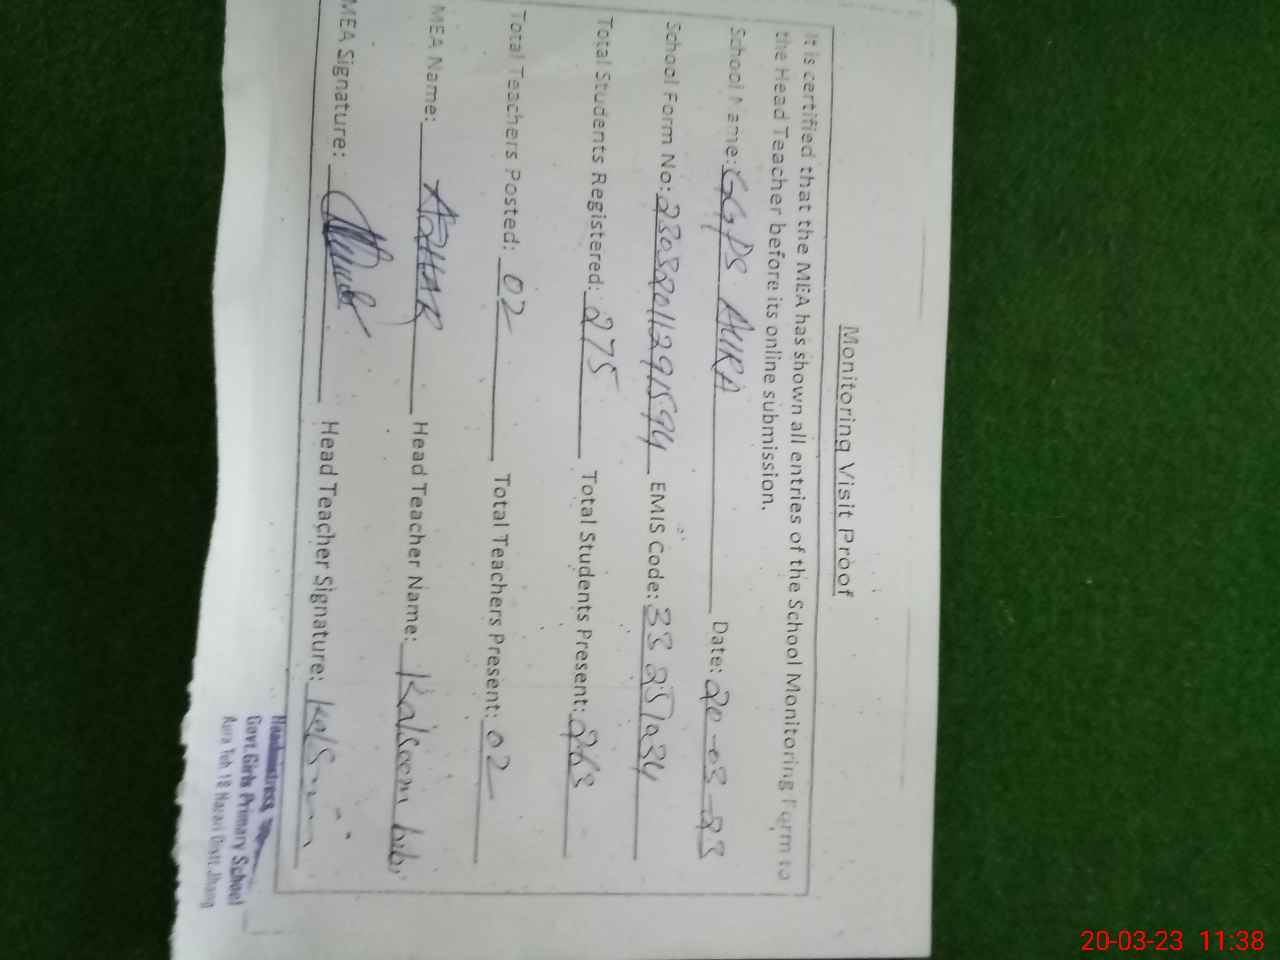 Monitoring Visit Proof
It is certified that the MEA has shown all entries of the School Monitoring Form to
the Head Teacher before its online submission.
School Name: GGPS AURA Date: 20-03-23
School Form No: 23032011291594 EMIS Code: 33251034
Total Students Registered: 275 Total Students Present: 263
Total Teachers Posted: 02 Total Teachers Present: 02
MEA Name: AZHAR Head Teacher Name: Kalsoom bibi
MEA Signature: Head Teacher Signature:
Headmistress
Govt. Girls Primary School
Aura Teh 18 Hazari Distt. Jhang
20-03-23 11:38